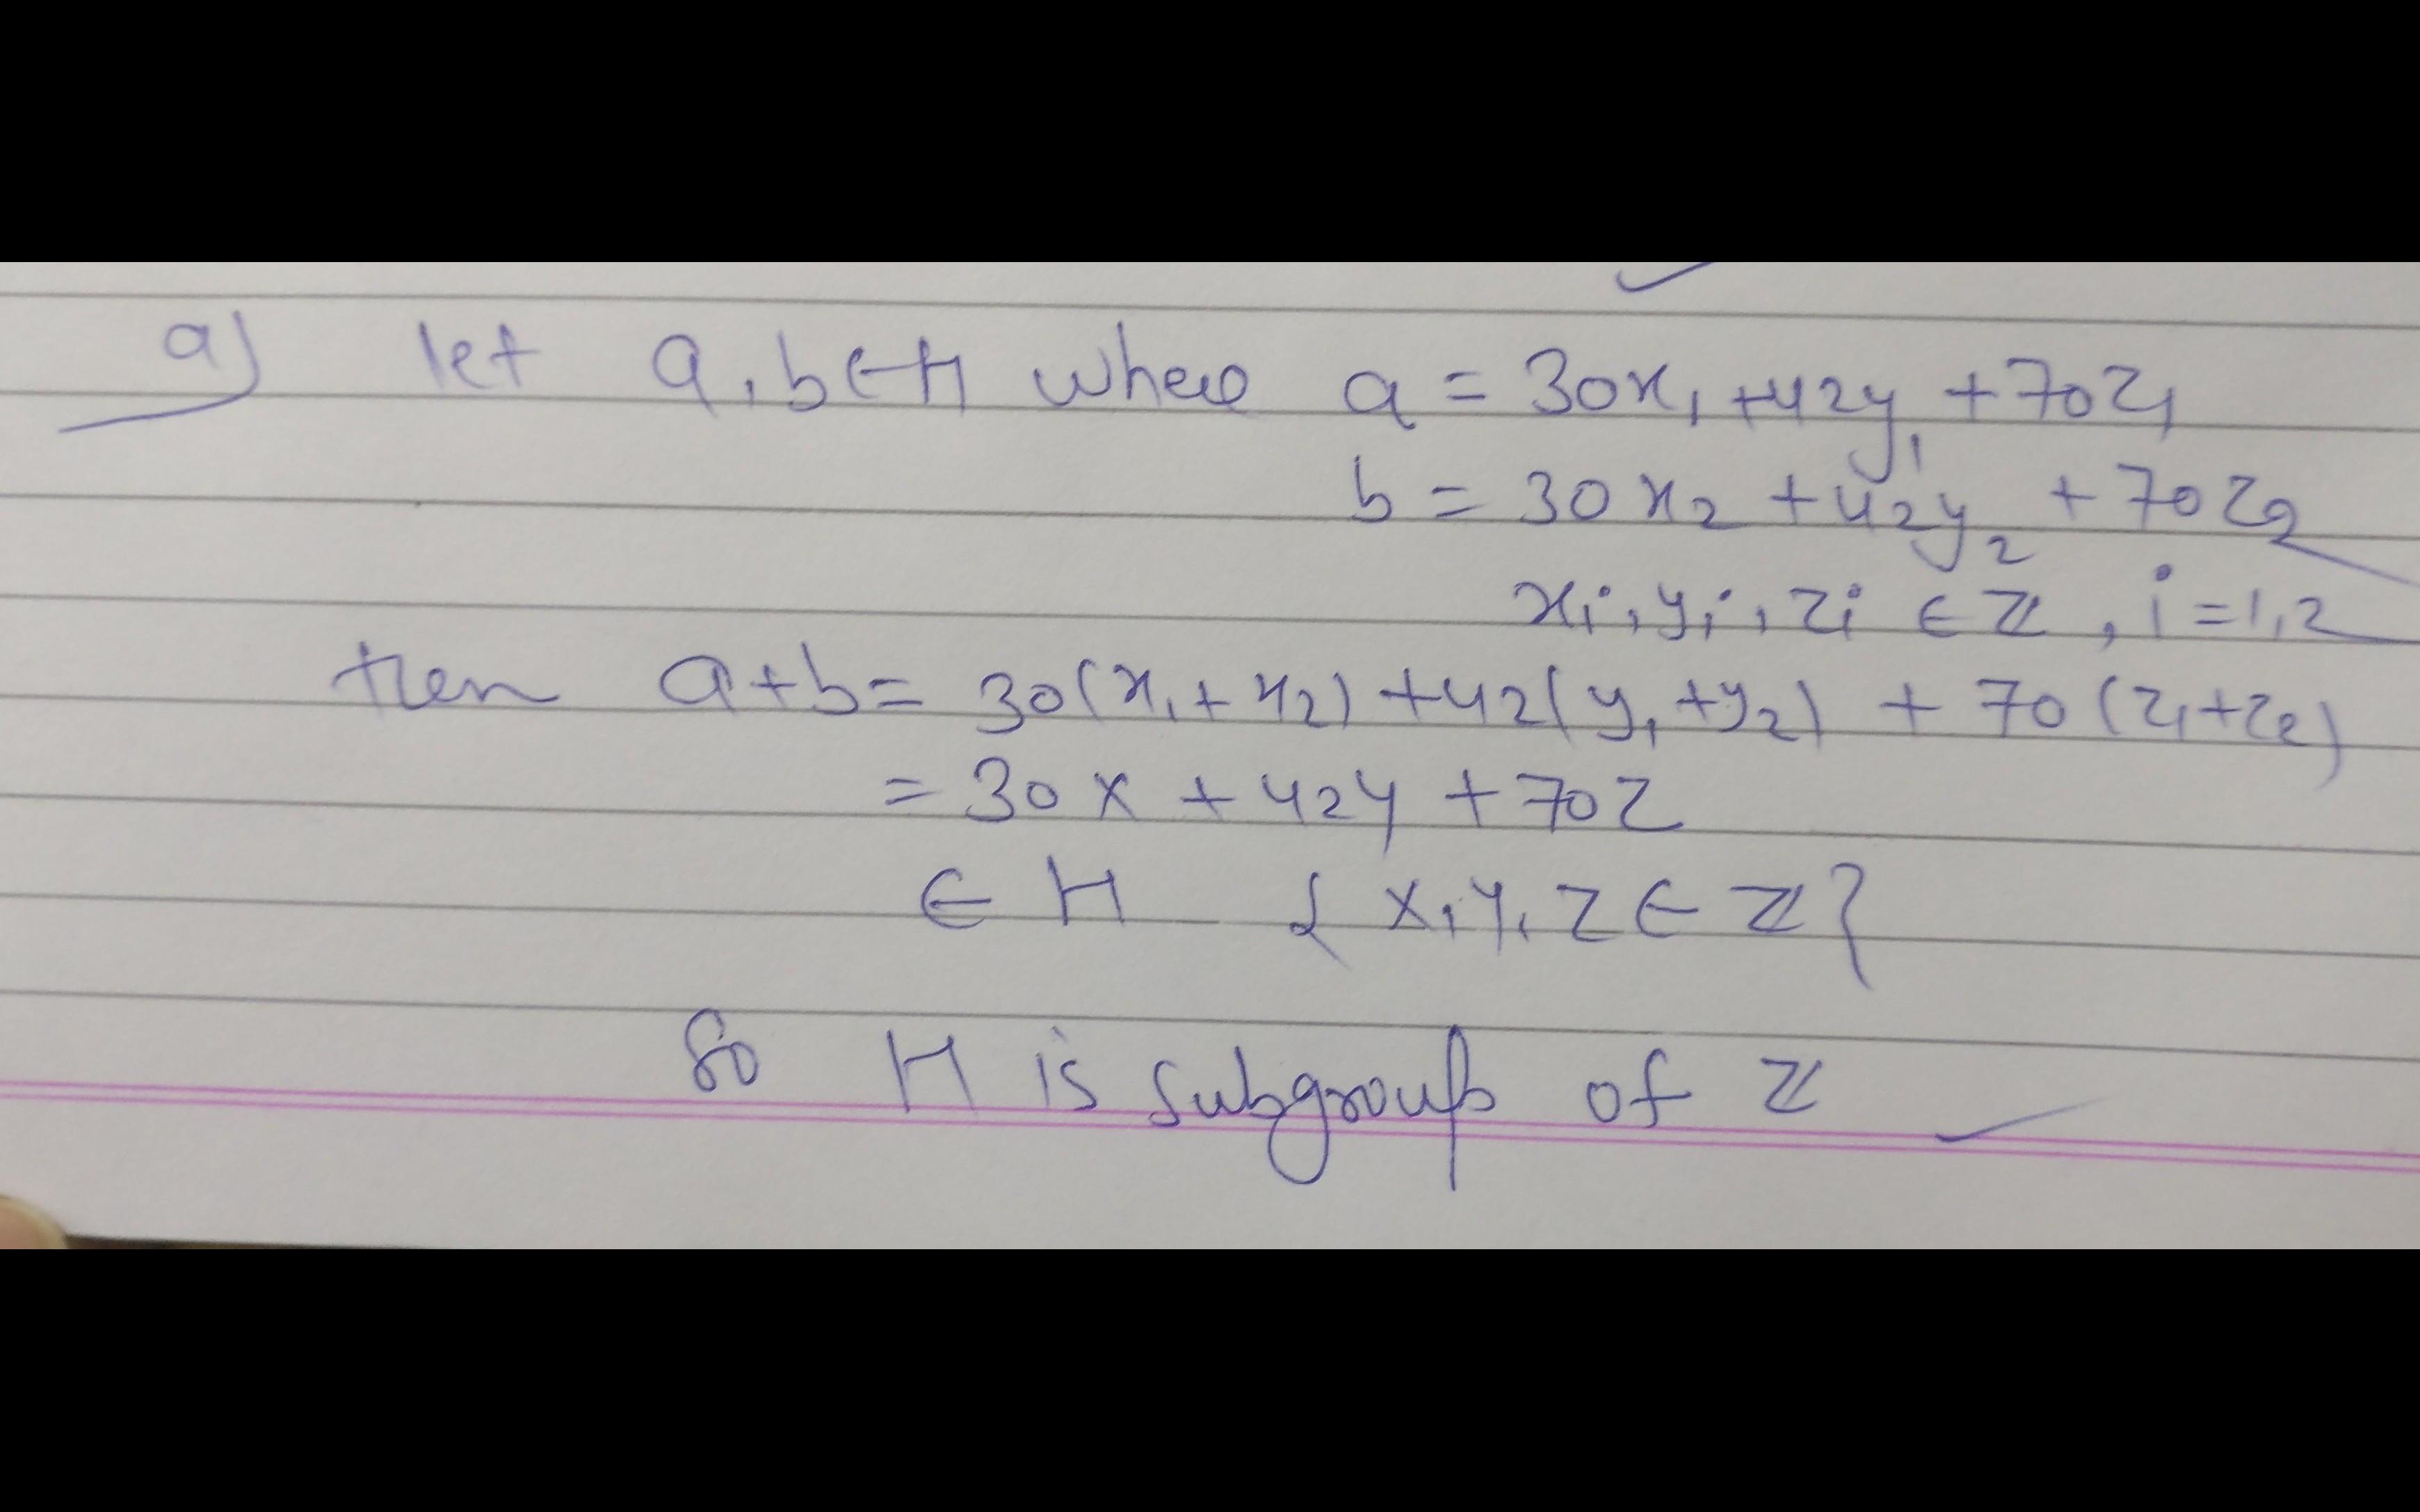 a) let a, b ∈ H where a = 30x₁ + 42y₁ + 70z₁
b = 30x₂ + 42y₂ + 70z₂
xᵢ, yᵢ, zᵢ ∈ ℤ, i = 1,2
then a+b = 30(x₁+x₂) + 42(y₁+y₂) + 70(z₁+z₂)
= 30x + 42y + 70z
∈ H { x, y, z ∈ ℤ }
So H is subgroup of ℤ